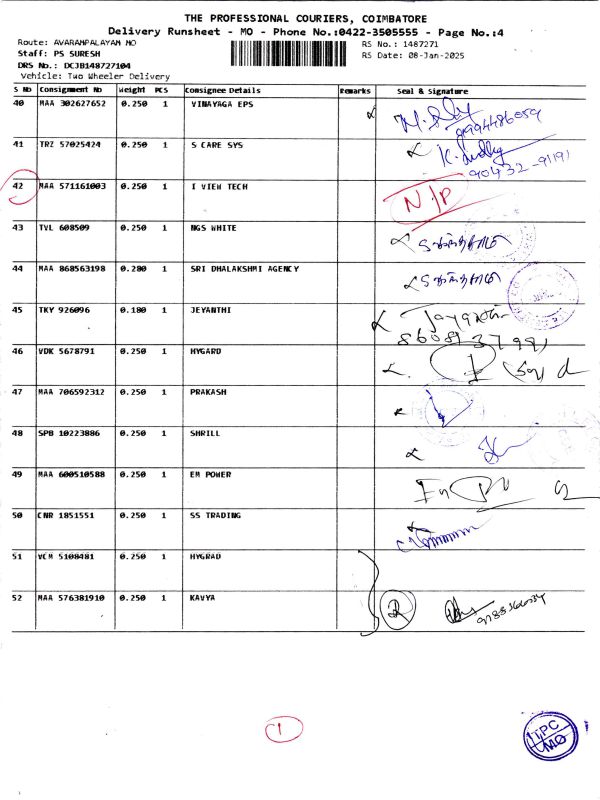 THE PROFESSIONAL COURIERS, COIMBATORE
Delivery Runsheet - MO - Phone No.:0422-3505555 - Page No.:4
Route: AVARAMPALAYAM MO
RS No.: 1487271
Staff: PS SURESH
RS Date: 08-Jan-2025
DRS No.: DCJB148727104
Vehicle: Two Wheeler Delivery
S No Consignment No Weight PCS Consignee Details Remarks Seal & Signature
40 MAA 302627652 0.250 1 VINAYAGA EPS
9994486059
41 TRZ 57025424 0.250 1 S CARE SYS
90432-91191
42 MAA 571161003 0.250 1 I VIEW TECH N/P
43 TVL 608509 0.250 1 NGS WHITE
44 MAA 868563198 0.280 1 SRI DHALAKSHMI AGENCY
45 TKY 926096 0.180 1 JEYANTHI
46 VDK 5678791 0.250 1 HYGARD
47 MAA 706592312 0.250 1 PRAKASH
48 SPB 10223886 0.250 1 SHRILL
49 MAA 600510588 0.250 1 EM POWER
50 CNR 1851551 0.250 1 SS TRADING
51 VCM 5108481 0.250 1 HYGRAD
52 MAA 576381910 0.250 1 KAVYA
1
TPC
MO